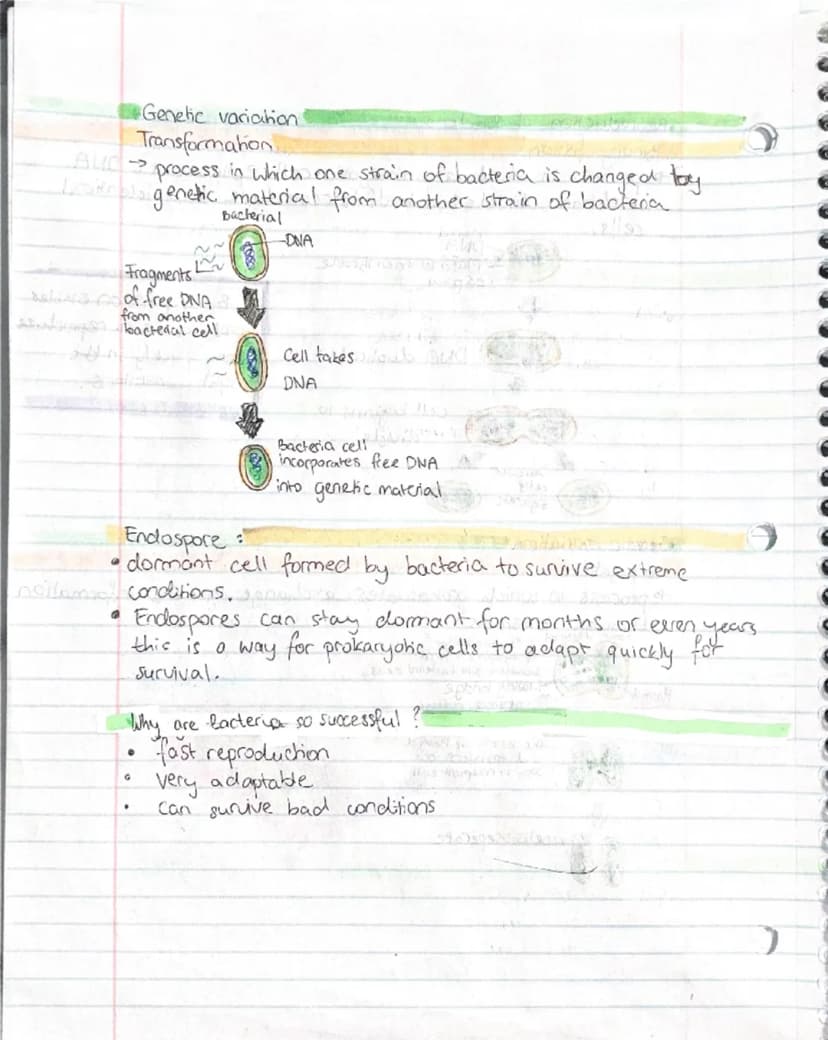 Genetic variation
Transformation
→ process in which one strain of bacteria is changed by
genetic material from another strain of bacteria
bacterial
DNA
Fragments
of free DNA
from another
bacterial cell
Cell takes
DNA
Bacteria cell
incorporates free DNA
into genetic material
Endospore :
• dormant cell formed by bacteria to survive extreme
conditions.
• Endospores can stay dormant for months or even years
this is a way for prokaryotic cells to adapt quickly for
survival.
Why are bacteria so successful ?
• fast reproduction
• very adaptable
• can survive bad conditions